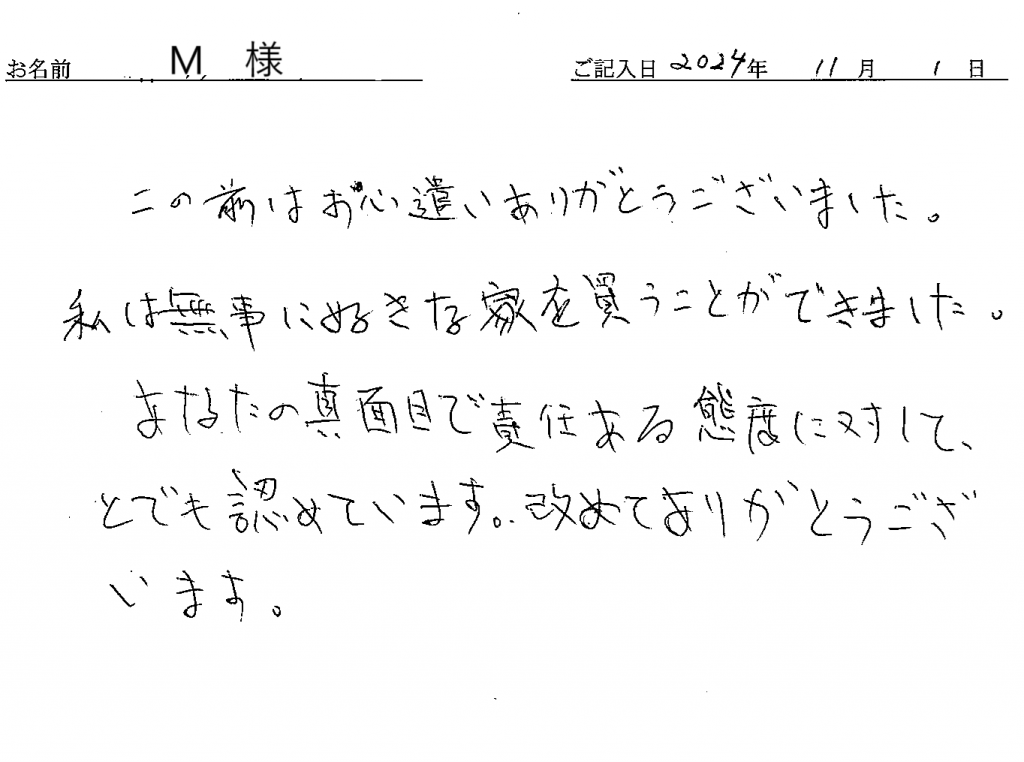 お名前 M 様 ご記入日 2024年 11月 1日
この前はお心遣いありがとうございました。
私は無事に好きな家を買うことができました。
あなたの真面目で責任ある態度に対して、
とでも認めています。改めてありがとうござ
います。